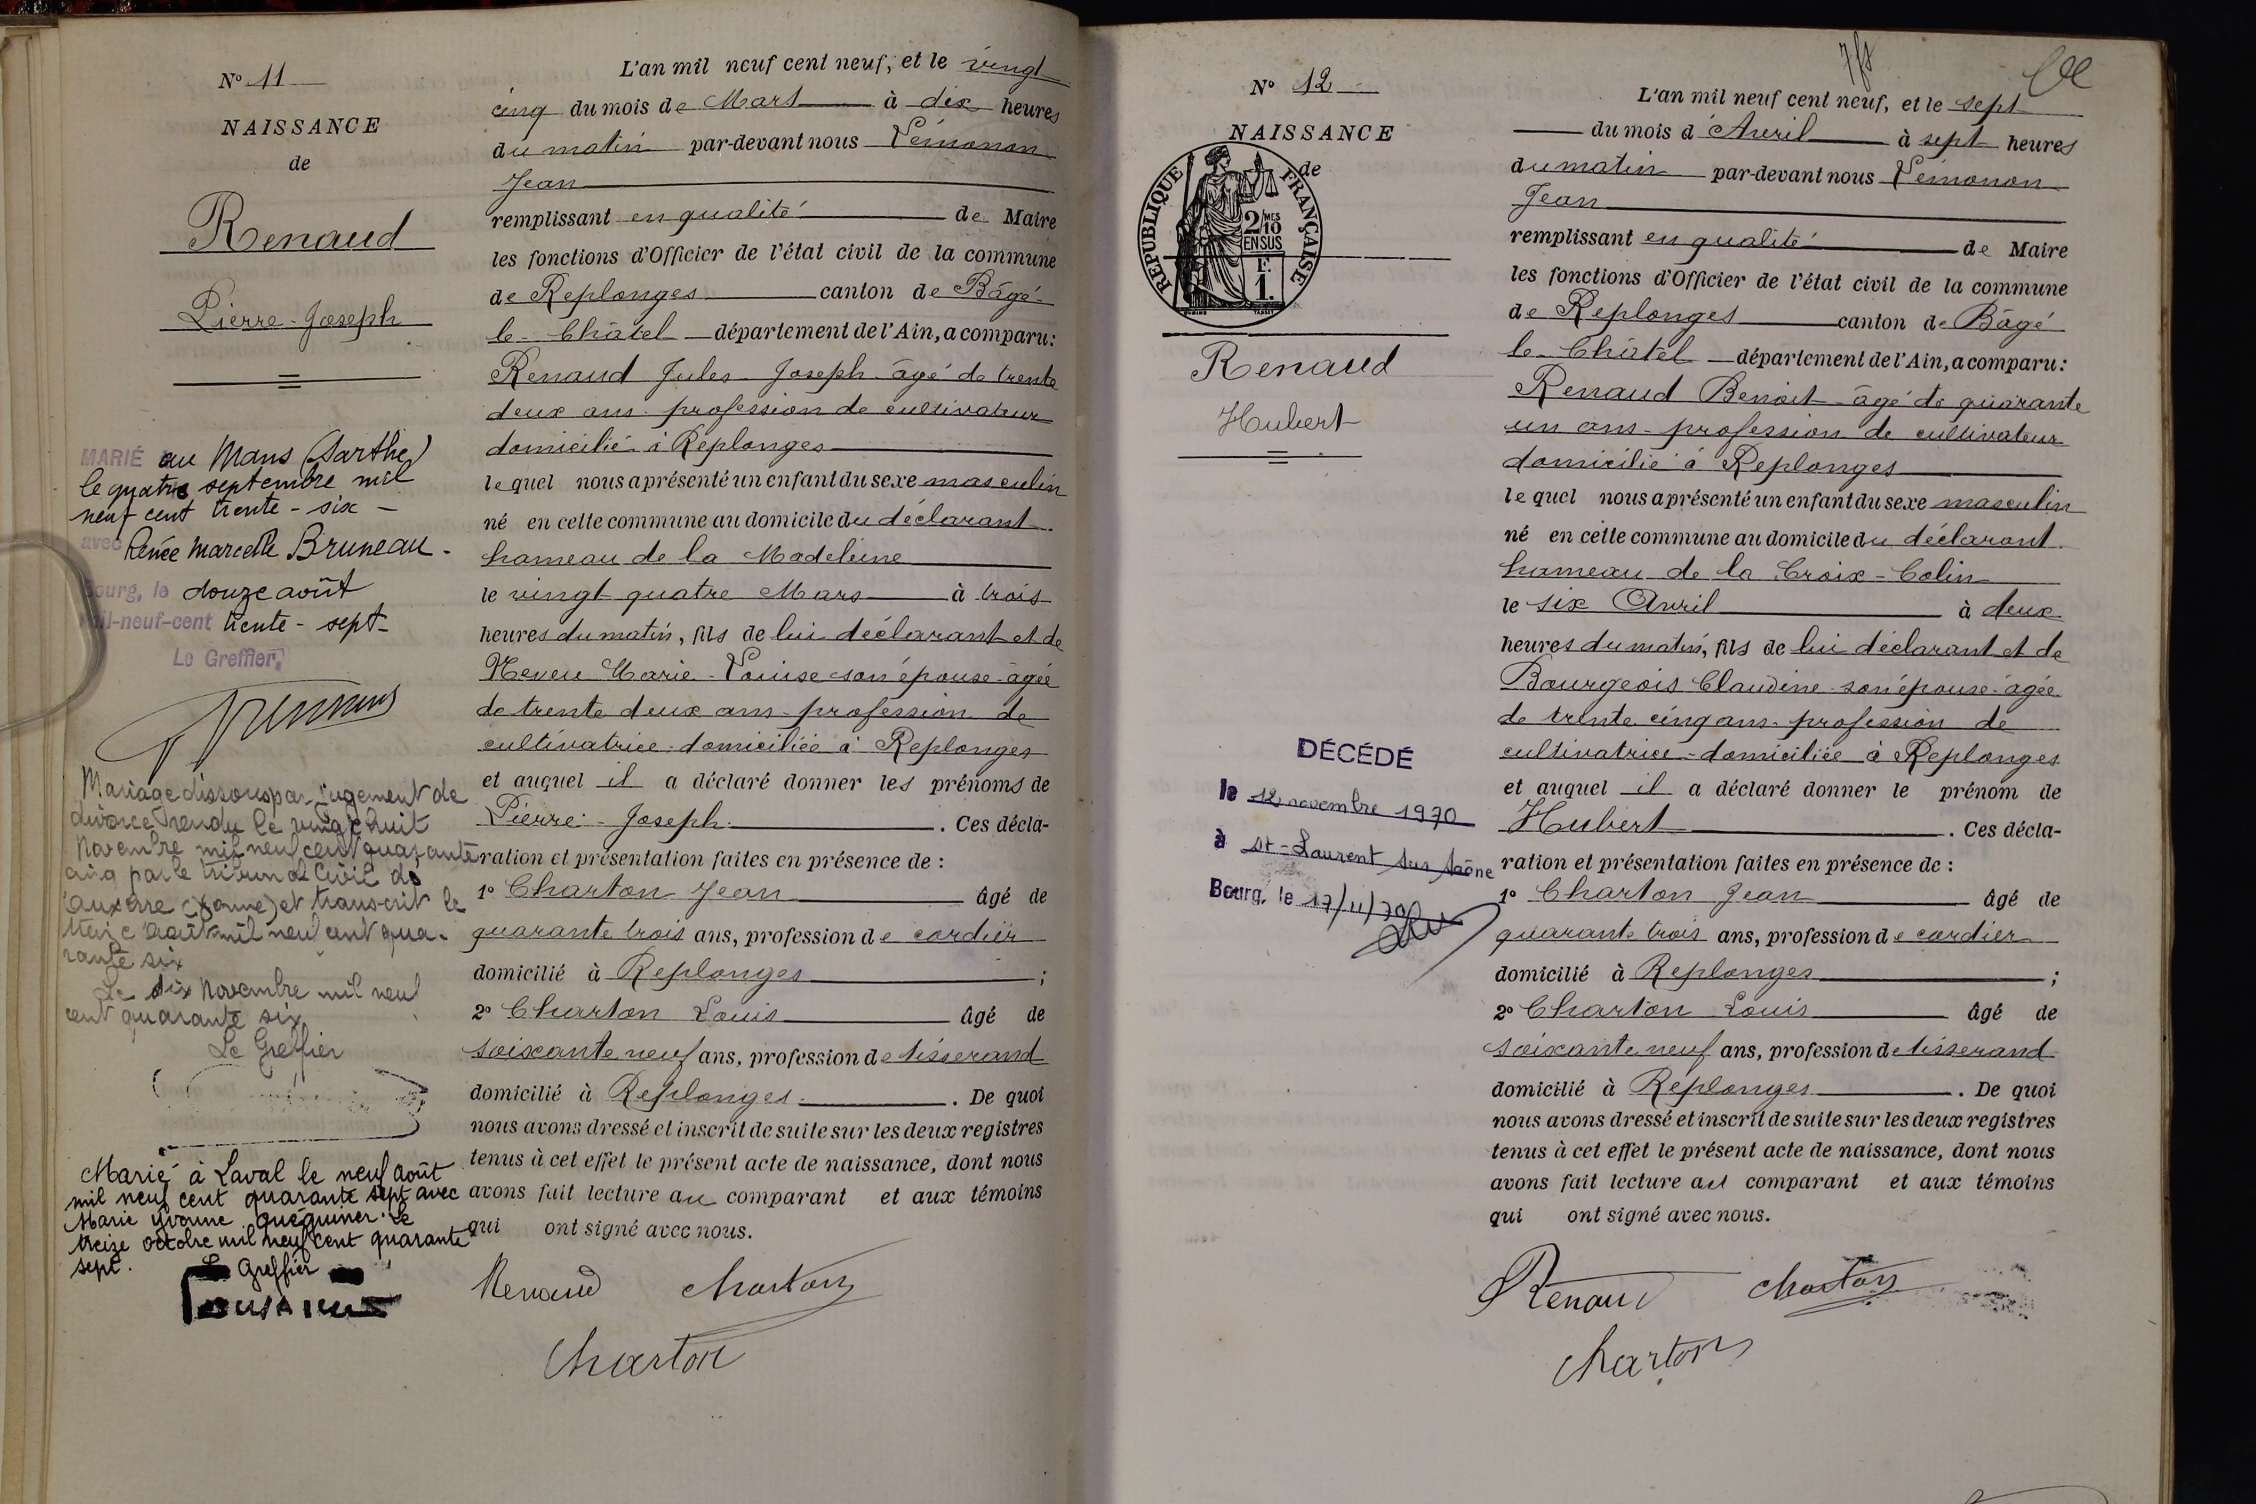 N° 11
NAISSANCE
de
Renaud
Pierre-Joseph
MARIÉ au Mans (Sarthe)
le quatre septembre mil
neuf cent trente-six -
avec Renée Marcelle Bruneau.
Bourg, le douze août
mil-neuf-cent trente-sept-
Le Greffier,
Mariage dissous par jugement de
divorce rendu le vingt huit
Novembre mil neuf cent quarante
cinq par le tribunal Civil de
Auxerre (Yonne) et transcrit le
treize août mil neuf cent qua-
rante six
Le dix Novembre mil neuf
cent quarante six
Le Greffier
Marié à Laval le neuf août
mil neuf cent quarante sept avec
Marie Yvonne Quéguiner. Le
treize octobre mil neuf cent quarante
sept.
Le Greffier
L'an mil neuf cent neuf, et le vingt
cinq du mois de Mars à dix heures
du matin par-devant nous Vémonon
Jean
remplissant en qualité de Maire
les fonctions d'Officier de l'état civil de la commune
de Replonges canton de Bâgé-
le-Châtel département de l'Ain, a comparu:
Renaud Jules-Joseph âgé de trente
deux ans profession de cultivateur
domicilié à Replonges
lequel nous a présenté un enfant du sexe masculin
né en cette commune au domicile du déclarant.
hameau de la Madeleine
le vingt quatre Mars à trois
heures du matin, fils de lui déclarant et de
Neveu Marie-Louise son épouse âgée
de trente deux ans profession de
cultivatrice domiciliée à Replonges
et auquel il a déclaré donner les prénoms de
Pierre-Joseph. Ces décla-
ration et présentation faites en présence de :
1° Charton Jean âgé de
quarante trois ans, profession de cordier
domicilié à Replonges ;
2° Charton Louis âgé de
soixante neuf ans, profession de tisserand
domicilié à Replonges. De quoi
nous avons dressé et inscrit de suite sur les deux registres
tenus à cet effet le présent acte de naissance, dont nous
avons fait lecture au comparant et aux témoins
qui ont signé avec nous.
Renaud Charton
Charton
N° 12
NAISSANCE
de
RÉPUBLIQUE FRANÇAISE
2/10 MES
EN SUS
F.
1.
Renaud
Hubert
DÉCÉDÉ
le 12 novembre 1970
à St-Laurent sur Saône
Bourg, le 17/11/70
L'an mil neuf cent neuf, et le sept
du mois d'Avril à sept heures
du matin par-devant nous Vémonon
Jean
remplissant en qualité de Maire
les fonctions d'Officier de l'état civil de la commune
de Replonges canton de Bâgé
le-Châtel département de l'Ain, a comparu:
Renaud Benoit âgé de quarante
un ans profession de cultivateur
domicilié à Replonges
lequel nous a présenté un enfant du sexe masculin
né en cette commune au domicile du déclarant.
hameau de la Croix-Colin
le six Avril à deux
heures du matin, fils de lui déclarant et de
Bourgeois Claudine son épouse âgée
de trente cinq ans profession de
cultivatrice domiciliée à Replonges
et auquel il a déclaré donner le prénom de
Hubert. Ces décla-
ration et présentation faites en présence de :
1° Charton Jean âgé de
quarante trois ans, profession de cordier
domicilié à Replonges ;
2° Charton Louis âgé de
soixante neuf ans, profession de tisserand
domicilié à Replonges. De quoi
nous avons dressé et inscrit de suite sur les deux registres
tenus à cet effet le présent acte de naissance, dont nous
avons fait lecture au comparant et aux témoins
qui ont signé avec nous.
Renaud Charton
Charton